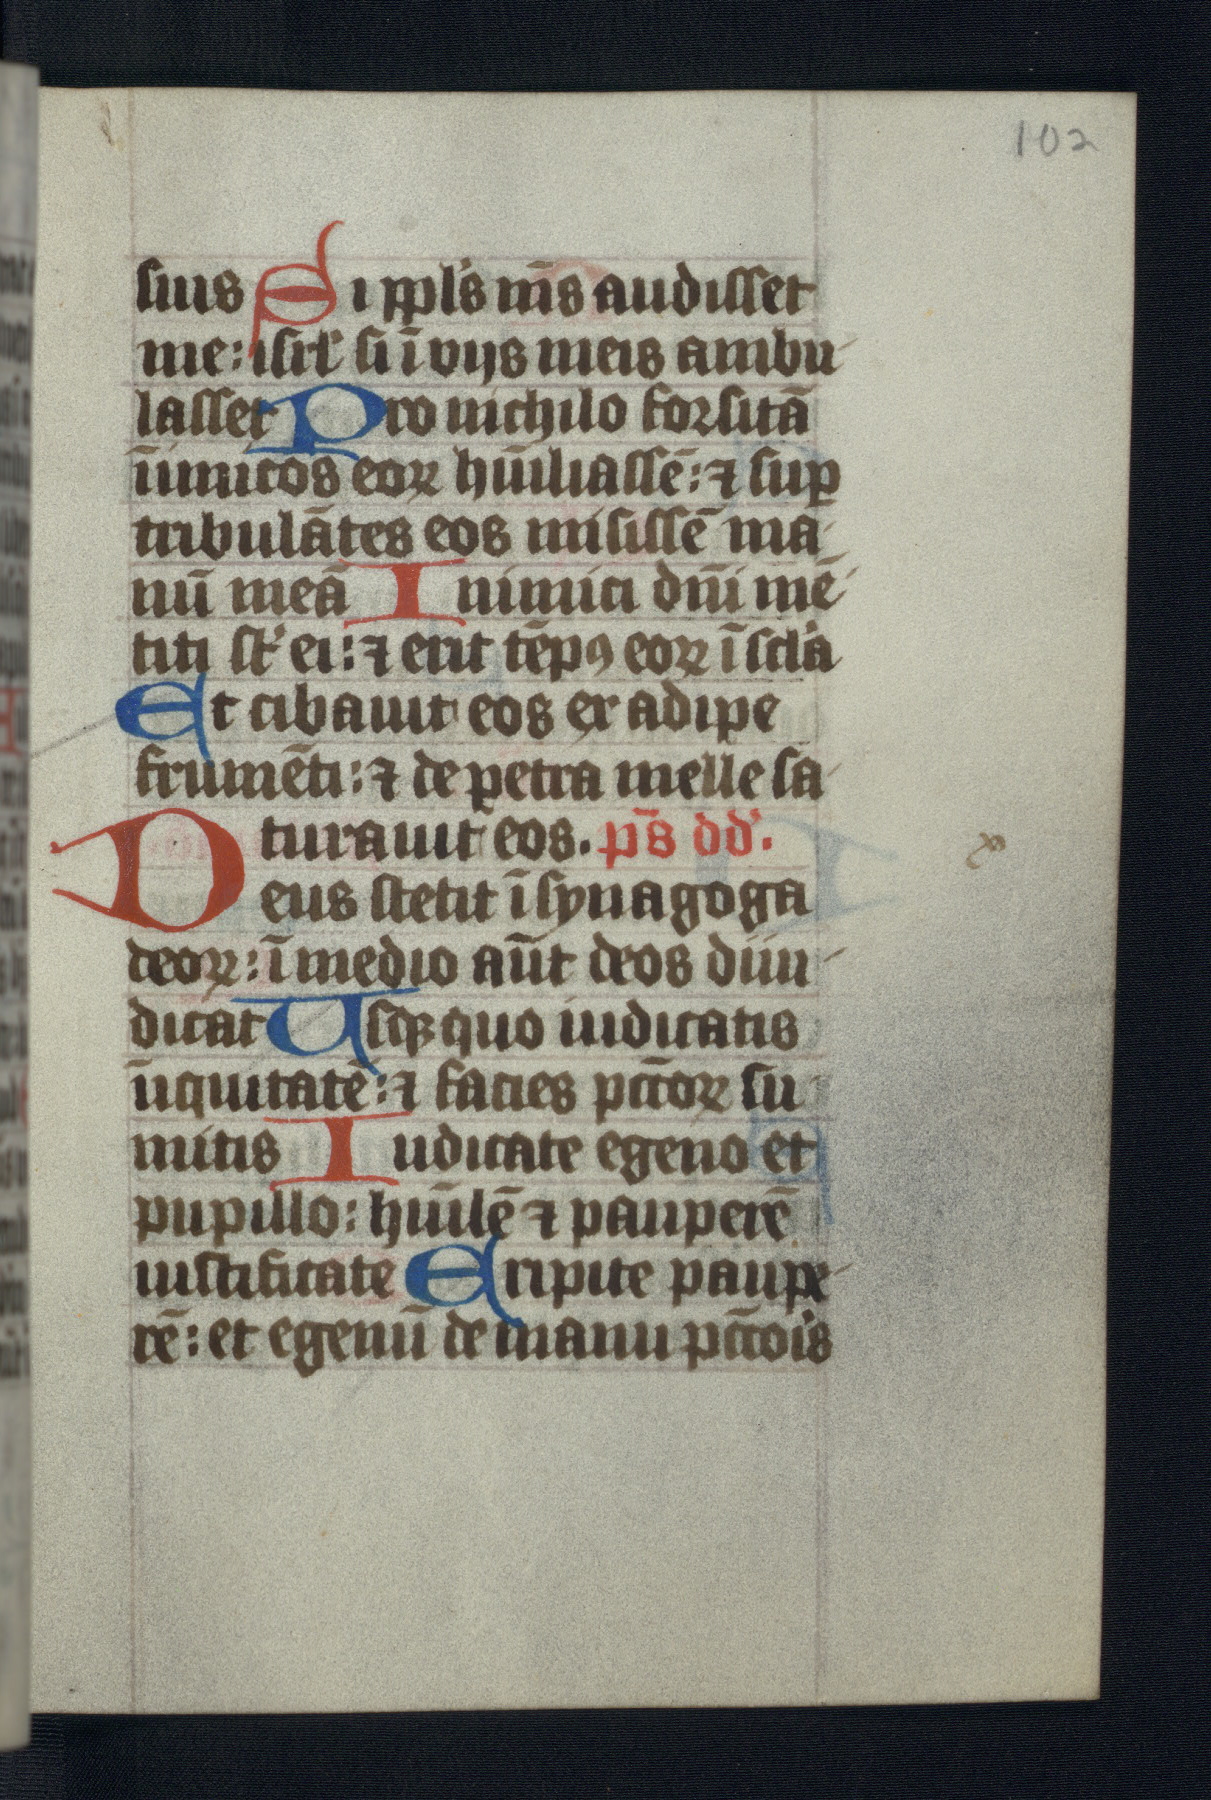 102
suis Si pp̄ls me̅s audisset
me: isrl̓ si ī vijs meis ambu-
lasset Pro nichilo forsitā
īimicos eoꝝ hūiliassē: ⁊ suꝑ
tribulātes eos misissē ma-
nū meā Inimici dn̄i mē-
titi st̓ ei: ⁊ erit tēpꝰ eoꝝ ī scl̓a
Et cibauit eos ex adipe
frumēti: ⁊ de petra melle sa-
turauit eos. ps̄ dd̓.
Deus stetit ī synagoga
deoꝝ: ī medio aūt deos diiu-
dicat Usqꝫ quo iudicatis
īiquitatē: ⁊ facies pcc̄toꝝ su-
mitis Iudicate egeno et
pupillo: hūilē ⁊ pauperē
iustificate Eripite paupe-
rē: et egenū de manu pcc̄tor̓is